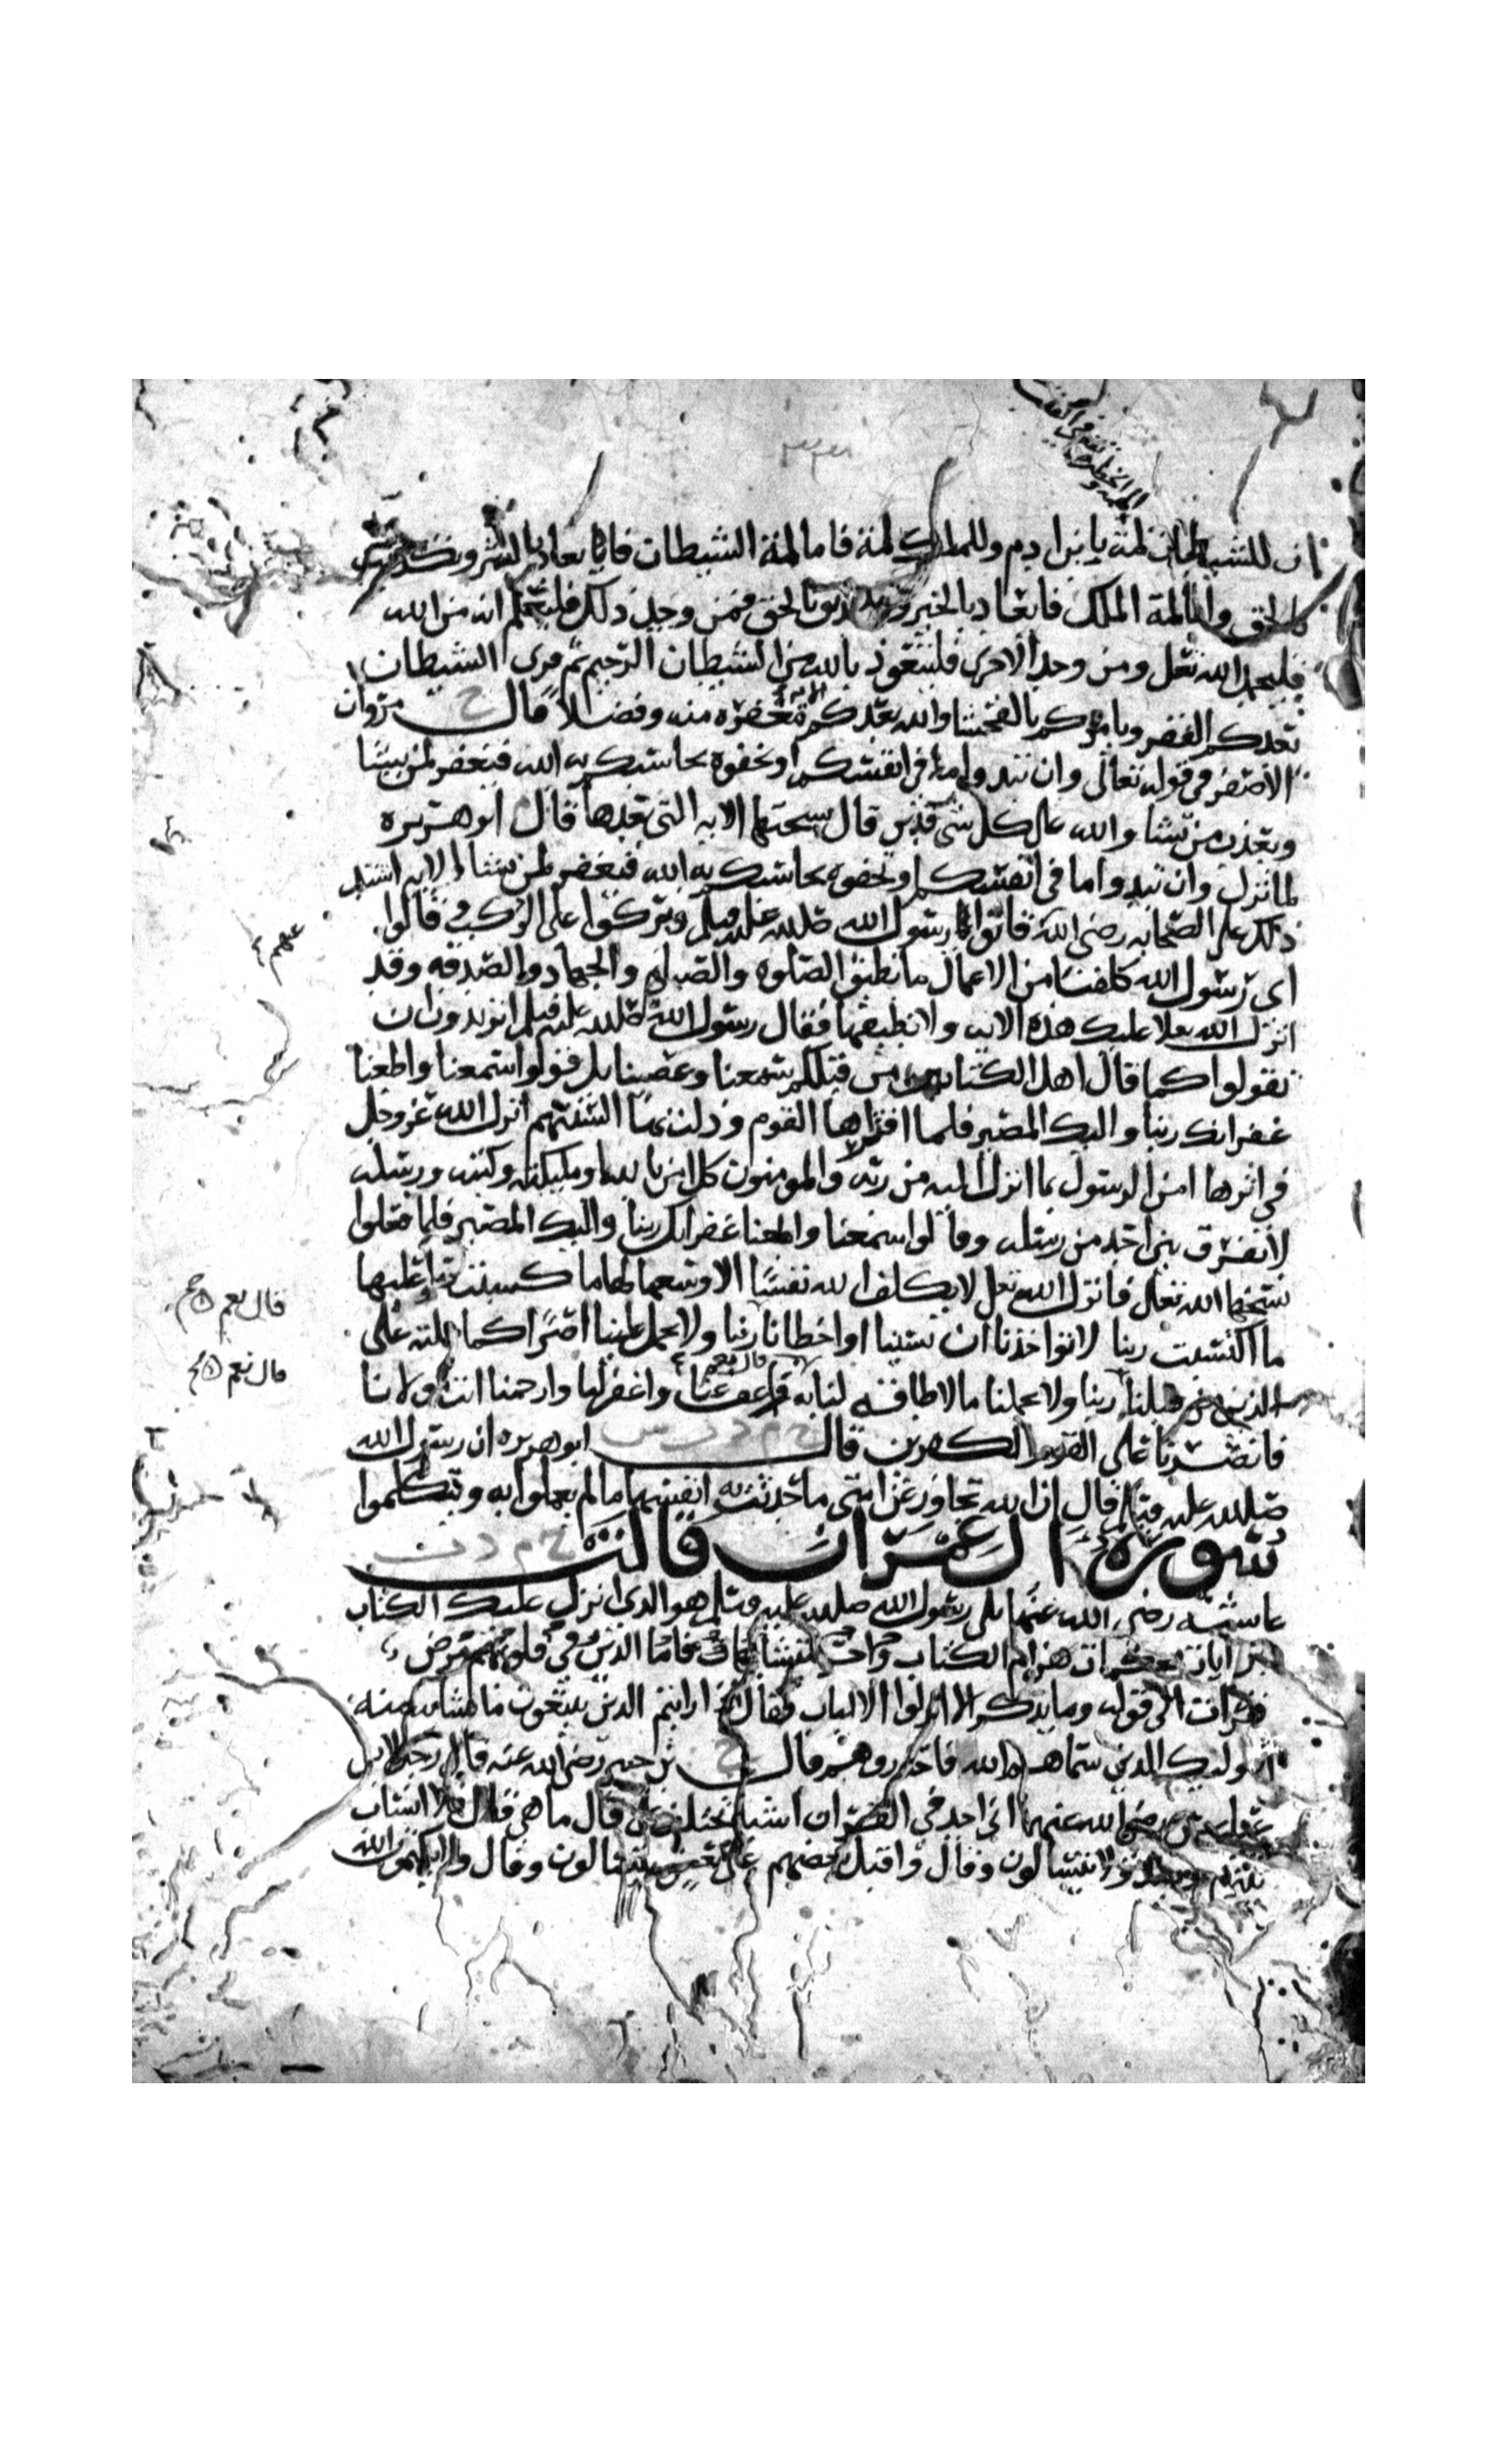 ان للشيطان لمة يا بن ادم وللملك لمة فاما لمة الشيطان فايعاد بالشر وتكذيب
بالحق واما لمة الملك فايعاد بالخير وتصديق بالحق فمن وجد ذلك فليعلم انه من الله
فليحمد الله تعلى ومن وجد الاخرى فليتعوذ بالله من الشيطان الرجيم ثم قرى الشيطان
يعدكم الفقر ويامركم بالفحشا والله يعدكم مغفرة منه وفضلا قال خ مروان
الاصفر في قوله تعالى وان تبدوا ما في انفسكم او تخفوه يحاسبكم به الله فيغفر لمن يشا
ويعذب من يشا والله على كل شى قدير قال نسختها الايه التي بعدها قال ابو هريره
لما نزل وان تبدوا ما في انفسكم او تخفوه يحاسبكم به الله فيغفر لمن يشا الايه اشتد
ذلك على الصحابه رضي الله فاتوا رسول الله صلى الله عليه وسلم وبركوا على الركب فقالوا
عنهم
اى رسول الله كلفنا من الاعمال ما نطيق الصلوه والصيام والجهاد والصدقه وقد
انزل الله عليك هذه الايه ولا نطيقها فقال رسول الله صلى الله عليه وسلم اتريدون ان
تقولوا كما قال اهل الكتاب من قبلكم سمعنا وعصينا بل قولوا سمعنا واطعنا
غفرانك ربنا واليك المصير فلما اقتراها القوم وذلت بها السنتهم انزل الله عز وجل
في اثرها امن الرسول بما انزل اليه من ربه والمومنون كل امن بالله وملئكته وكتبه ورسله
لا نفرق بين احد من رسله وقالوا سمعنا واطعنا غفرانك ربنا واليك المصير فلما فعلوا
نسخها الله تعالى فانزل الله تعلى لا يكلف الله نفسا الا وسعها لها ما كسبت وعليها
قال نعم
ما اكتسبت ربنا لا تواخذنا ان نسينا او اخطانا ربنا ولا تحمل علينا اصرا كما حملته على
قال نعم
الذين من قبلنا ربنا ولا تحملنا ما لا طاقة لنا به قال نعم واعف عنا واغفر لنا وارحمنا انت مولانا
فانصرنا على القوم الكفرين قال خ م د ت س ابو هريره ان رسول الله
صلى الله عليه وسلم قال ان الله تجاوز عن امتي ما حدثت به انفسها ما لم يعملوا به او يتكلموا
سورة ال عمران قالت خ م د ت
عايشه رضي الله عنها تلى رسول الله صلى الله عليه وسلم هو الذى انزل عليك الكتاب
منه ايات محكمات هن ام الكتاب واخر متشابهات فاما الذين في قلوبهم مرض
فقرات الى قوله وما يذكر الا اولوا الالباب فقال اذا رايتم الذين يتبعون ما تشابه منه
اوليك الذين سماهم الله فاحذروهم قال خ بن جبير رضي الله عنه قال رجل لابن
عباس رضي الله عنهما اني اجد في القران اشيا تختلف على قال ما هي قال فلا انساب
بينهم يوميذ ولا يتسالون وقال واقبل بعضهم على بعض يتسالون وقال ولا يكتمون الله